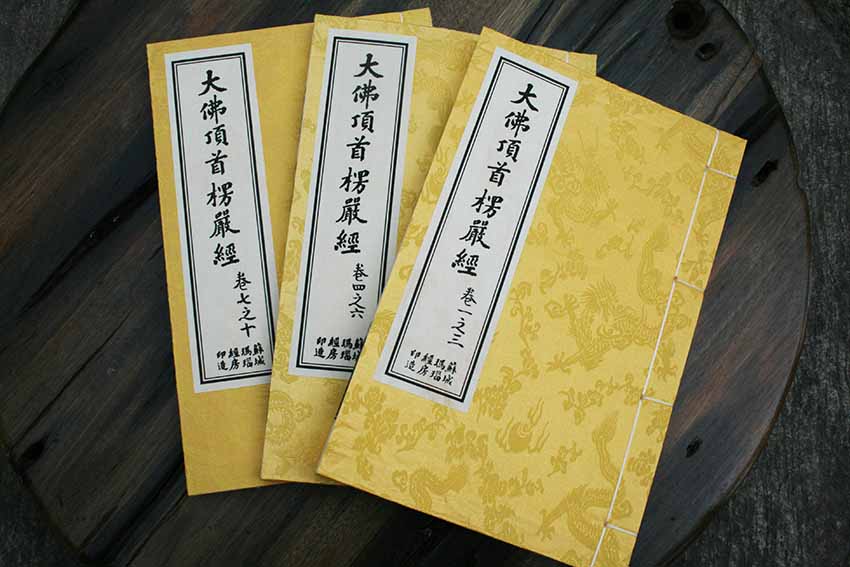 大佛頂首楞嚴經 卷一之三
蘇城
瑪瑙
經房
印造
大佛頂首楞嚴經 卷四之六
蘇城
瑪瑙
經房
印造
大佛頂首楞嚴經 卷七之十
蘇城
瑪瑙
經房
印造